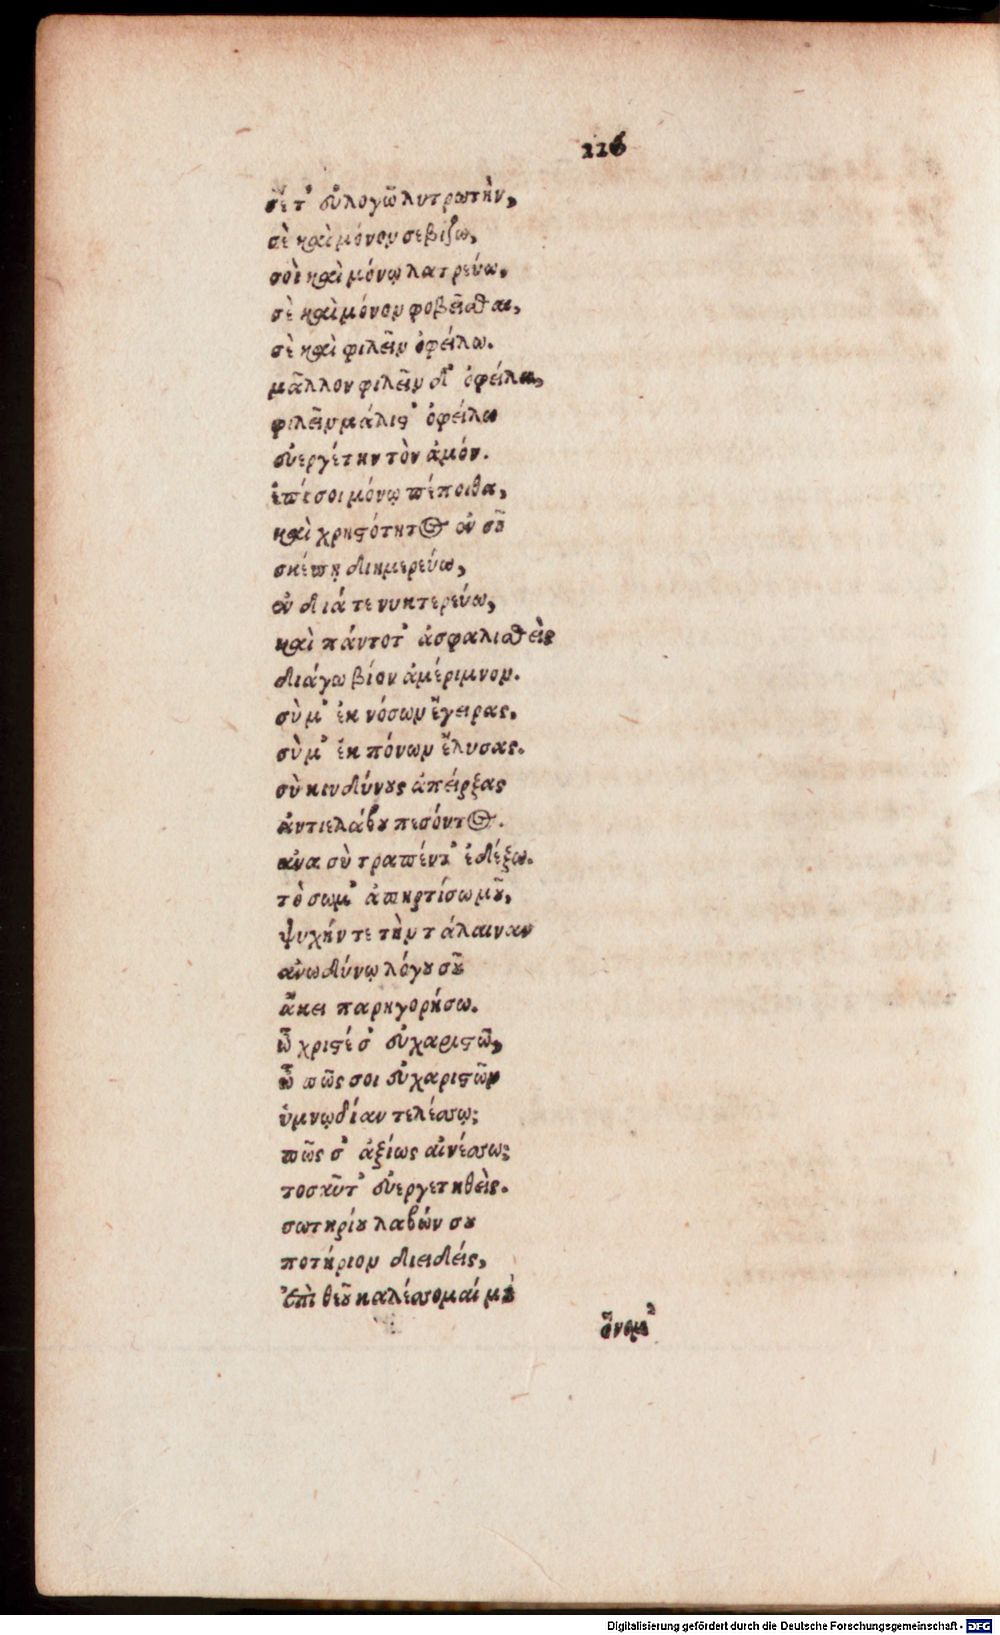 116
σὲ τ' εὐλογῶ λυτρωτὴν,
σὲ καὶ μόνον σεβίζω,
σοὶ καὶ μόνῳ λατρεύω,
σὲ καὶ μόνον φοβεῖσθαι,
σὲ καὶ φιλεῖν ὀφείλω.
μᾶλλον φιλεῖν δ' ὀφείλω,
φιλεῖν μάλιστ' ὀφείλω
εὐεργέτην τὸν ἀμόν.
ἐπὶ σοι μόνῳ πέποιθα,
καὶ χρηστότητος ἐν σοῦ
σκέπῃ διημερεύω,
ἐν διά τε νυκτερεύω,
καὶ πάντοτ' ἀσφαλισθεὶς
διάγω βίον ἀμέριμνον.
σὺ μ' ἐκ νόσων ἤγειρας,
σὺ μ' ἐκ πόνων ἔλυσας.
σὺ κινδύνους ἀπείρξας
ἀντιελάβου πεσόντος.
ἀνα σὺ τραπέντ' ἐδέξω.
τὸ σωμ' ἀπηρτίσω μοῦ,
ψυχήν τε τὴν τάλαιναν
ἀνωδύνῳ λόγου σοῦ
ἄκει παρηγορήσω.
ὦ χριστέ σ' εὐχαριστῶ,
ὦ πῶς σοι εὐχαριστῶν
ὑμνῳδίαν τελέσω;
πῶς σ' ἀξίως αἰνέσω;
τοσαῦτ' εὐεργετηθεὶς.
σωτηρίου λαβών σου
ποτήριον διειδές,
ἐπὶ θεοῦ καλέσομαί μου
ὄνομ'
Digitalisierung gefördert durch die Deutsche Forschungsgemeinschaft - DFG